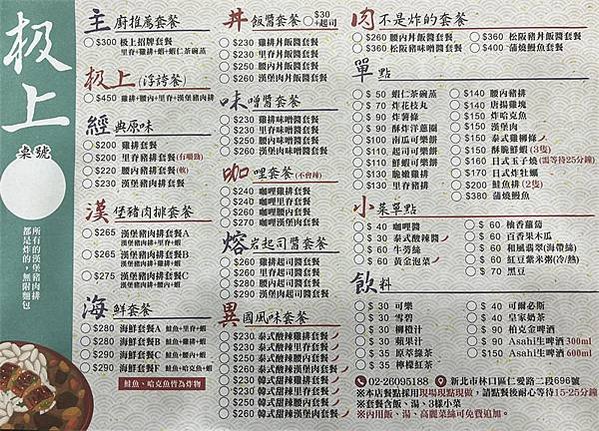 极上
桌號
所有的漢堡豬肉排
都是炸的，無附麵包
主廚推薦套餐
$300 极上招牌套餐
里脊+雞排+蝦+蝦仁茶碗蒸
极上(浮誇餐)
$450 雞排+腰內+里脊+漢堡豬肉排
經典原味
$200 雞排套餐
$200 里脊豬排套餐(有嚼勁)
$220 腰內豬排套餐(軟)
$230 漢堡豬肉套餐
漢堡豬肉排套餐
$265 漢堡豬肉排套餐A
漢堡豬肉排+里脊+蝦
$265 漢堡豬肉排套餐B
漢堡豬肉排+雞排+蝦
$275 漢堡豬肉排套餐C
漢堡豬肉排+腰內+蝦
海鮮套餐
$280 海鮮套餐A 鮭魚+里脊+蝦
$280 海鮮套餐B 鮭魚+雞排+蝦
$290 海鮮套餐C 鮭魚+腰內+蝦
$290 海鮮套餐F
鮭魚、哈克魚皆為炸物
丼飯醬套餐
$30
+起司
$230 雞排丼飯醬套餐
$230 里脊丼飯醬套餐
$250 腰內丼飯醬套餐
$260 漢堡肉丼飯醬套餐
味噌醬套餐
$230 雞排味噌醬套餐
$230 里脊味噌醬套餐
$250 腰內味噌醬套餐
$260 漢堡肉味噌醬套餐
咖哩套餐(不會辣)
$240 咖哩雞排套餐
$240 咖哩里脊套餐
$260 咖哩腰內套餐
$270 咖哩漢堡肉套餐
熔岩起司醬套餐
$260 雞排起司醬套餐
$260 里脊起司醬套餐
$280 腰內起司醬套餐
$290 漢堡肉起司醬套餐
異國風味套餐
$230 泰式酸辣雞排套餐
$230 泰式酸辣里脊套餐
$250 泰式酸辣腰內套餐
$260 泰式酸辣漢堡肉套餐
$230 韓式甜辣雞排套餐
$230 韓式甜辣里脊套餐
$250 韓式甜辣腰內套餐
$260 韓式甜辣漢堡肉套餐
肉不是炸的套餐
$260 腰內豬丼飯醬套餐
$360 松阪豬味噌醬套餐
$360 松阪豬丼飯醬套餐
$400 蒲燒鰻魚套餐
單點
$ 50 蝦仁茶碗蒸
$ 70 炸花枝丸
$ 90 炸薯條
$ 90 酥炸洋蔥圈
$100 南瓜可樂餅
$110 起司可樂餅
$110 鮮蝦可樂餅
$130 脆嫩雞排
$130 里脊豬排
$140 腰內豬排
$140 唐揚雞塊
$150 炸哈克魚
$150 漢堡肉
$150 泰式雞柳條
$150 酥脆鮮蝦(3隻)
$160 日式玉子燒(需等待25分鐘)
$170 日式炸牡蠣
$200 鮭魚排(2塊)
$380 蒲燒鰻魚
小菜單點
$ 40 咖哩醬
$ 30 泰式酸辣醬
$ 60 牛蒡絲
$ 60 黃金泡菜
$ 60 柚香蘿蔔
$ 60 百香果木瓜
$ 60 和風翡翠(海帶絲)
$ 60 紅豆紫米粥(冷/熱)
$ 70 黑豆
飲料
$ 30 可樂
$ 30 雪碧
$ 30 柳橙汁
$ 30 蘋果汁
$ 35 原萃綠茶
$ 35 檸檬紅茶
$ 40 可爾必斯
$ 40 皇家奶茶
$ 90 柏克金啤酒
$ 90 Asahi生啤酒300ml
$150 Asahi生啤酒600ml
02-26095188 新北市林口區仁愛路二段696號
※本店餐點採用現場現點現做，請點餐後耐心等待15-25分鐘
※套餐含飯、湯、3樣小菜
※內用飯、湯、高麗菜絲可免費追加。